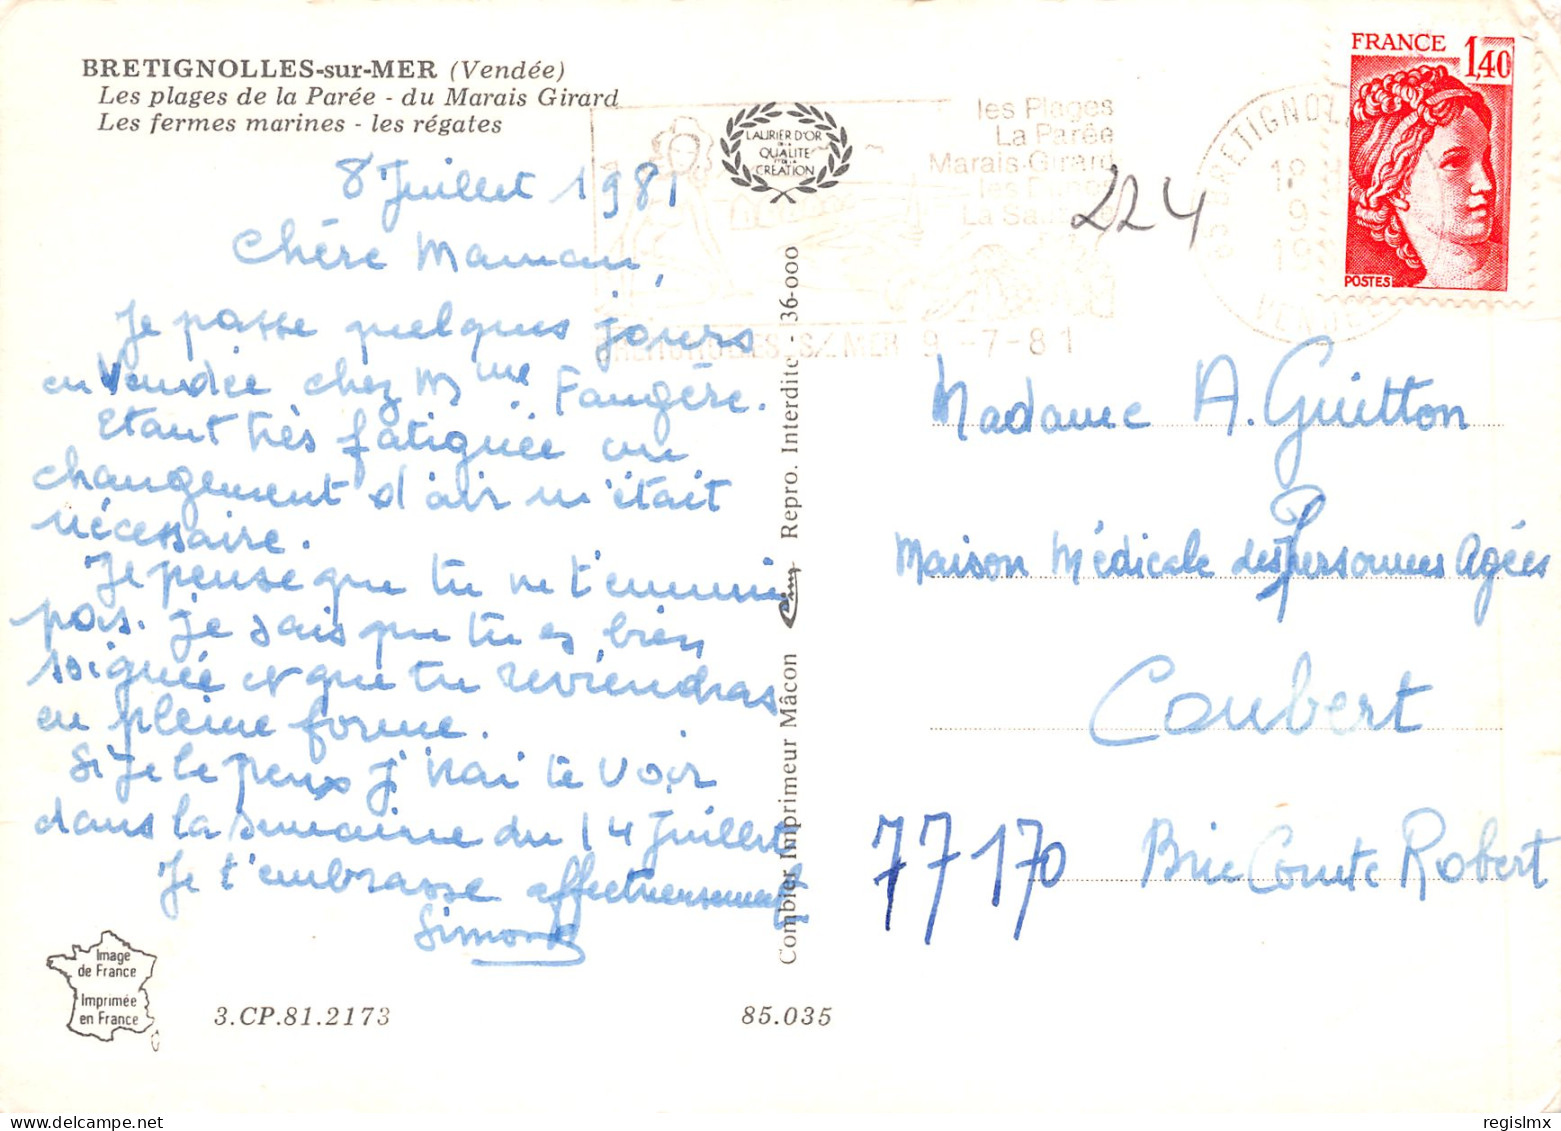 BRETIGNOLLES-sur-MER (Vendée)
Les plages de la Parée - du Marais Girard
Les fermes marines - les régates
8 Juillet 1981
Chère Maman,
Je passe quelques jours
en Vendée chez Mme Faugère.
Etant très fatiguée un
changement d'air m'était
nécessaire.
Je pense que tu ne t'ennuie
pas. Je sais que tu es bien
soignée et que tu reviendras
en pleine forme.
Si je le peux j'irai te voir
dans la semaine du 14 Juillet
Je t'embrasse affectueusement
Simone
Image
de France
Imprimée
en France
3.CP.81.2173
85.035
LAURIER D'OR
DE LA
QUALITÉ
CRÉATION
Combier Imprimeur Mâcon Cim Repro. Interdite - 36-000
les Plages
La Parée
Marais-Girard
les
La
BRETIGNOLLES S/ MER 9-7-81
224
BRETIGNOL
9
19
FRANCE 1,40
POSTES
Madame A. Guitton
Maison Médicale des Personnes Agées
Coubert
77170 Brie Comte Robert
regislmx